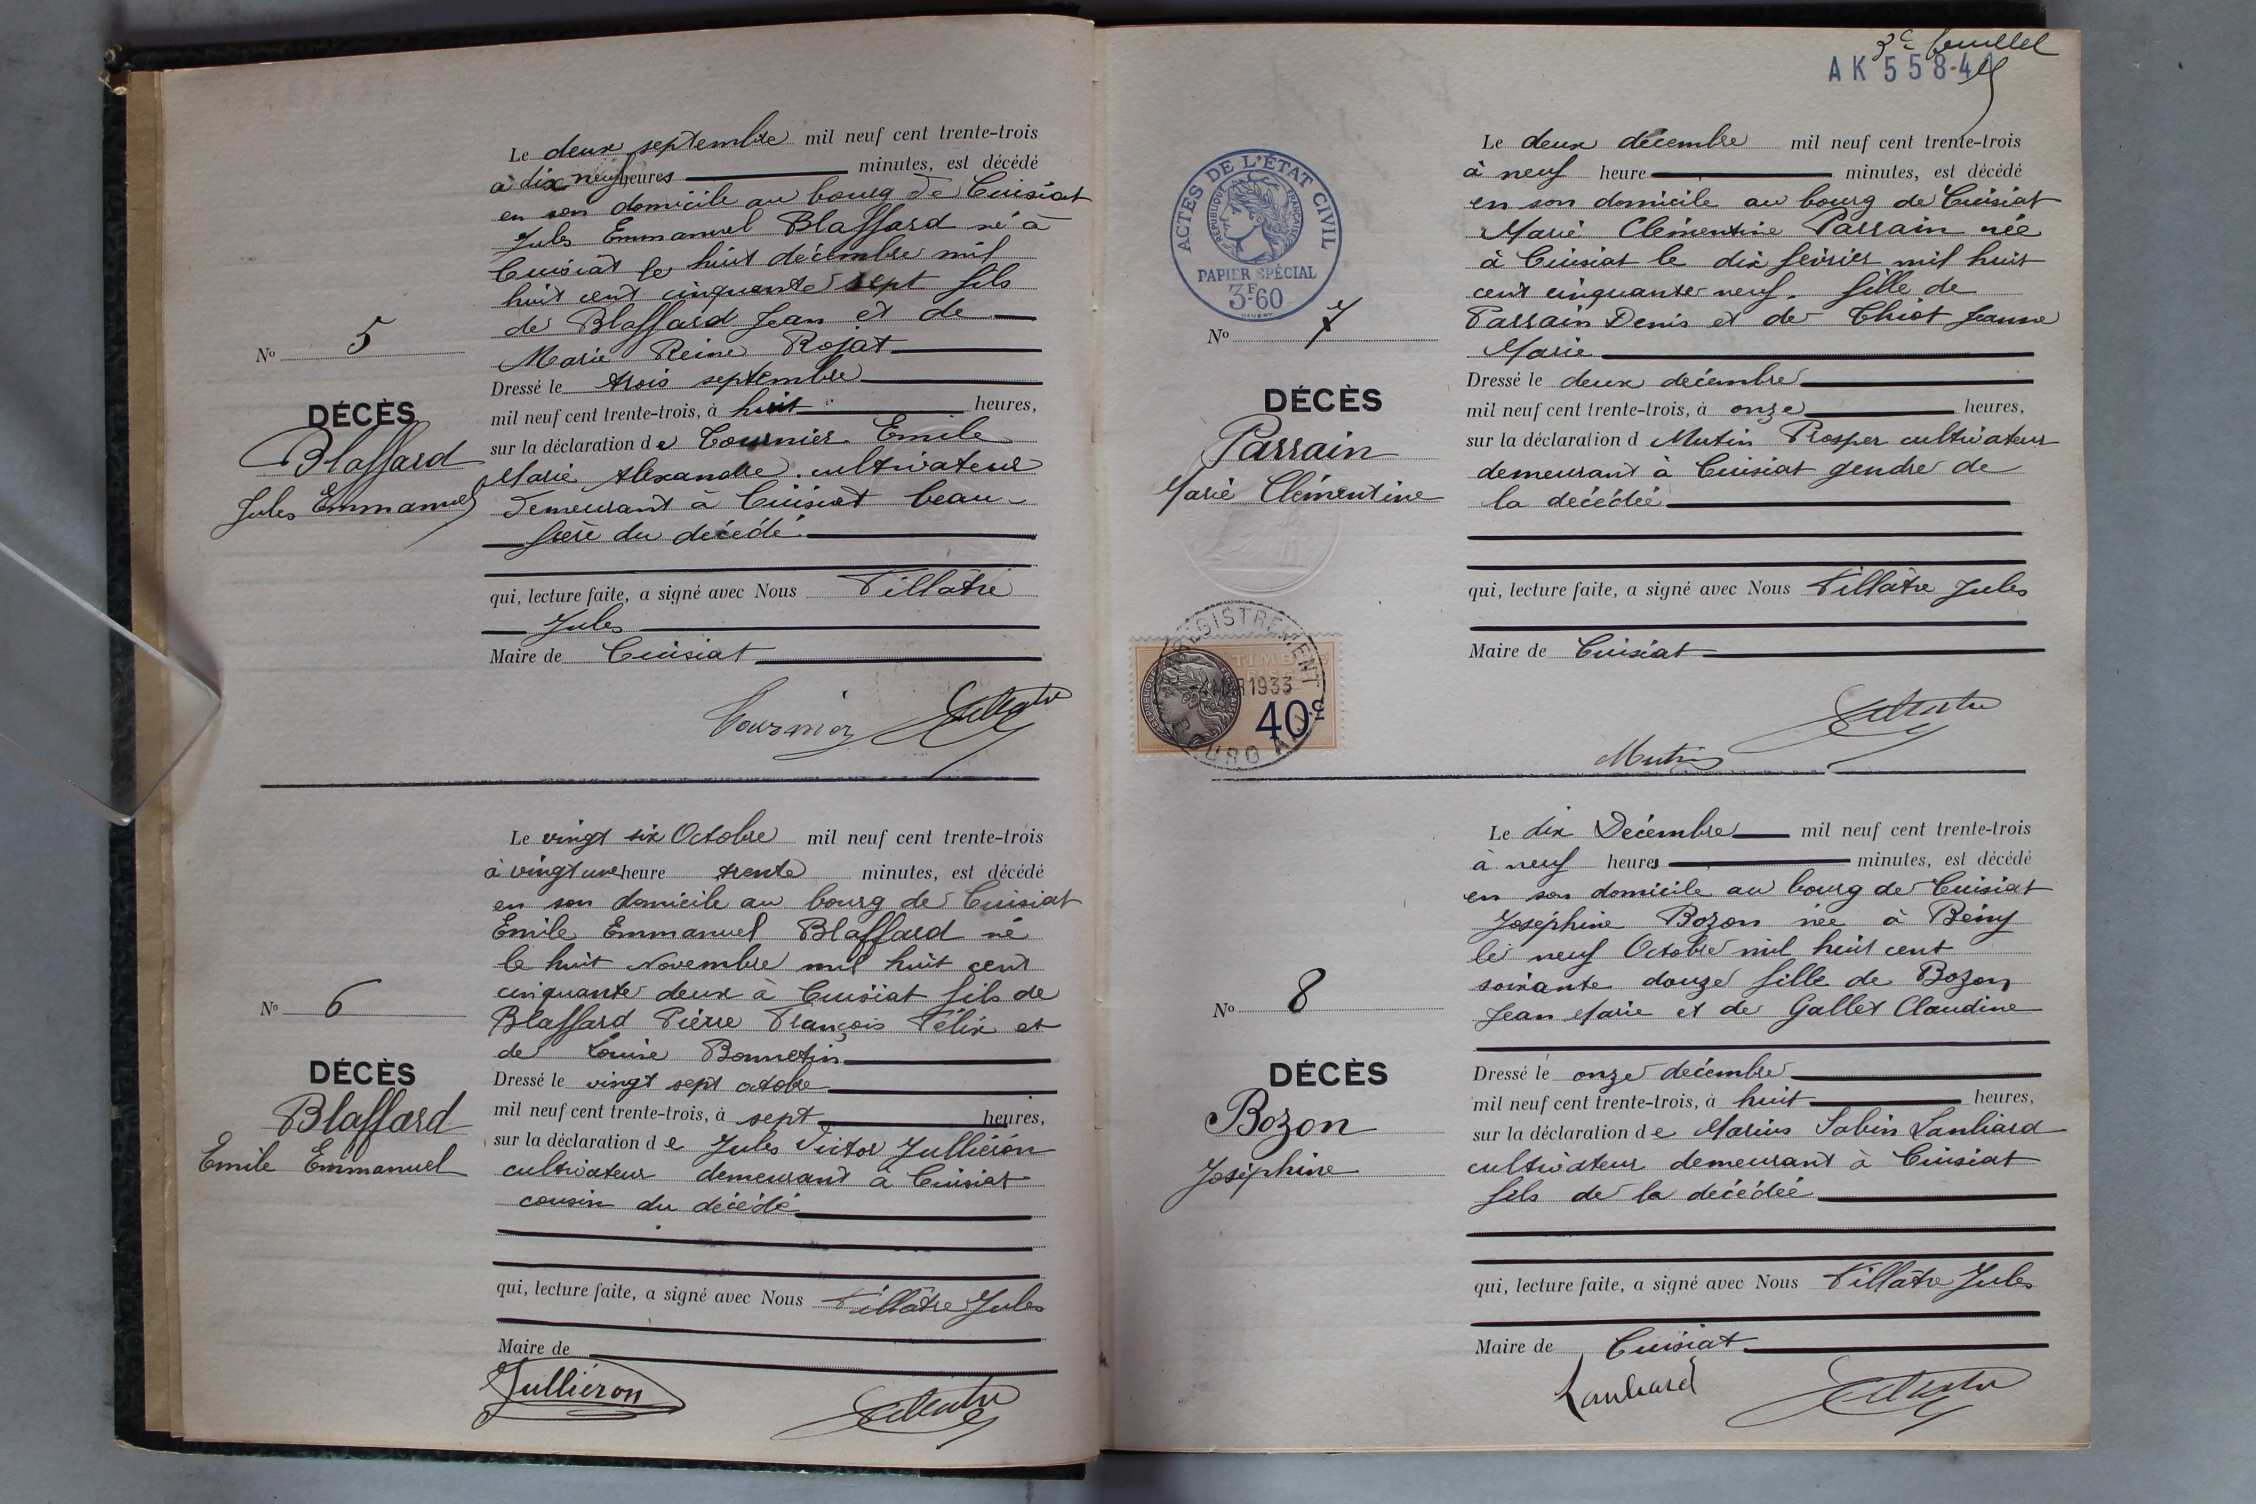 Le deux septembre mil neuf cent trente-trois
à dix neuf heures minutes, est décédé
en son domicile au bourg de Cuisiat
Jules Emmanuel Blaffard né à
Cuisiat le huit décembre mil
huit cent cinquante sept fils
de Blaffard Jean et de
Marie Reine Rojat
Nº 5
DÉCÈS
Blaffard
Jules Emmanuel
Dressé le trois septembre
mil neuf cent trente-trois, à huit heures,
sur la déclaration de Tournier Emile
Marie Alexandre cultivateur
demeurant à Cuisiat beau-
frère du décédé
qui, lecture faite, a signé avec Nous Villâtre
Jules
Maire de Cuisiat
Tournier
Le vingt six Octobre mil neuf cent trente-trois
à vingt une heure trente minutes, est décédé
en son domicile au bourg de Cuisiat
Emile Emmanuel Blaffard né
le huit Novembre mil huit cent
cinquante deux à Cuisiat fils de
Blaffard Pierre François Félix et
de Louise Bonnetin
Nº 6
DÉCÈS
Blaffard
Emile Emmanuel
Dressé le vingt sept octobre
mil neuf cent trente-trois, à sept heures,
sur la déclaration de Jules Victor Julliéron
cultivateur demeurant à Cuisiat
cousin du décédé
qui, lecture faite, a signé avec Nous Villâtre Jules
Maire de
Julliéron
3e feuillet
AK 558-41
ACTES DE L'ÉTAT CIVIL
RÉPUBLIQUE FRANÇAISE
PAPIER SPÉCIAL
3F60
Le deux décembre mil neuf cent trente-trois
à neuf heure minutes, est décédé
en son domicile au bourg de Cuisiat
Marie Clémentine Parrain née
à Cuisiat le dix février mil huit
cent cinquante neuf. fille de
Parrain Denis et de Chiot Jeanne
Marie
Nº 7
DÉCÈS
Parrain
Marie Clémentine
Dressé le deux décembre
mil neuf cent trente-trois, à onze heures,
sur la déclaration d Mutin Prosper cultivateur
demeurant à Cuisiat gendre de
la décédée
qui, lecture faite, a signé avec Nous Villâtre Jules
Maire de Cuisiat
ENREGISTREMENT
TIMBRE
1933
40c
Mutin
Le dix Décembre mil neuf cent trente-trois
à neuf heures minutes, est décédé
en son domicile au bourg de Cuisiat
Joséphine Bozon née à Bény
le neuf Octobre mil huit cent
soixante douze fille de Bozon
Jean Marie et de Gallet Claudine
Nº 8
DÉCÈS
Bozon
Joséphine
Dressé le onze décembre
mil neuf cent trente-trois, à huit heures,
sur la déclaration de Marius Sabin Lanliard
cultivateur demeurant à Cuisiat
fils de la décédée
qui, lecture faite, a signé avec Nous Villâtre Jules
Maire de Cuisiat